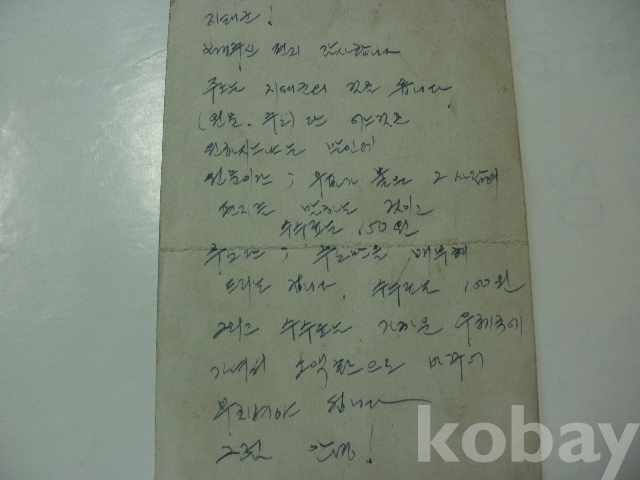 지태군!
보내주신 편지 감사합니다
주소는 지태군의 것은 씁니다
(원문, 주리) 라는 어느것을
원하시느냐는 말인데
원문이라는; 우표가 붙은 그 사람의
편지를 말하는 것이고
수수료는 150원
주소는; 주소만을
드리는 겁니다. 수수료는 100원
그리고 수수료는 가까운 우체국에
가셔서 소액환으로 바꾸어
부치셔야 됩니다
그럼 안녕!
kobay